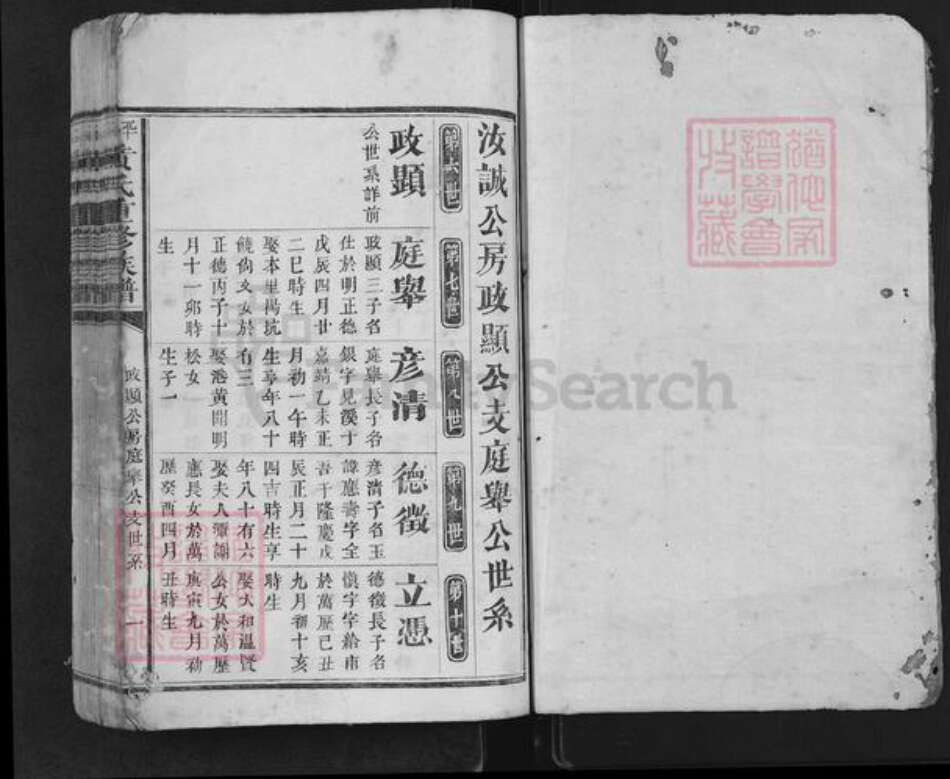 汝誠公房政顯公支庭舉公世系
第六世
第七世
第八世
第九世
第十世
政顯
公世系詳前
庭舉
政顯三子名
仕於明正德
戊辰四月廿
二巳時生
娶本里楊坑
饒 女於
正德丙子十
月十一卯時
生
彥清
庭舉長子名
銀字見溪于
嘉靖乙未正
月初一午時
生享年八十
有三
娶 黃開明
松女
生子一
德徵
彥清子名玉
諱應壽字全
吾于隆慶戊
辰正月二十
四吉時生享
年八十有六
娶夫人 謝
應長女於萬
歷癸酉四月
丑時生
立憑
德徵長子名
慎字
於萬歷己丑
九月初十亥
時生
娶大和溫賢
公女於萬歷
庚寅九月
黃氏重修族譜
政顯公房庭舉公支世系
一
FamilySearch